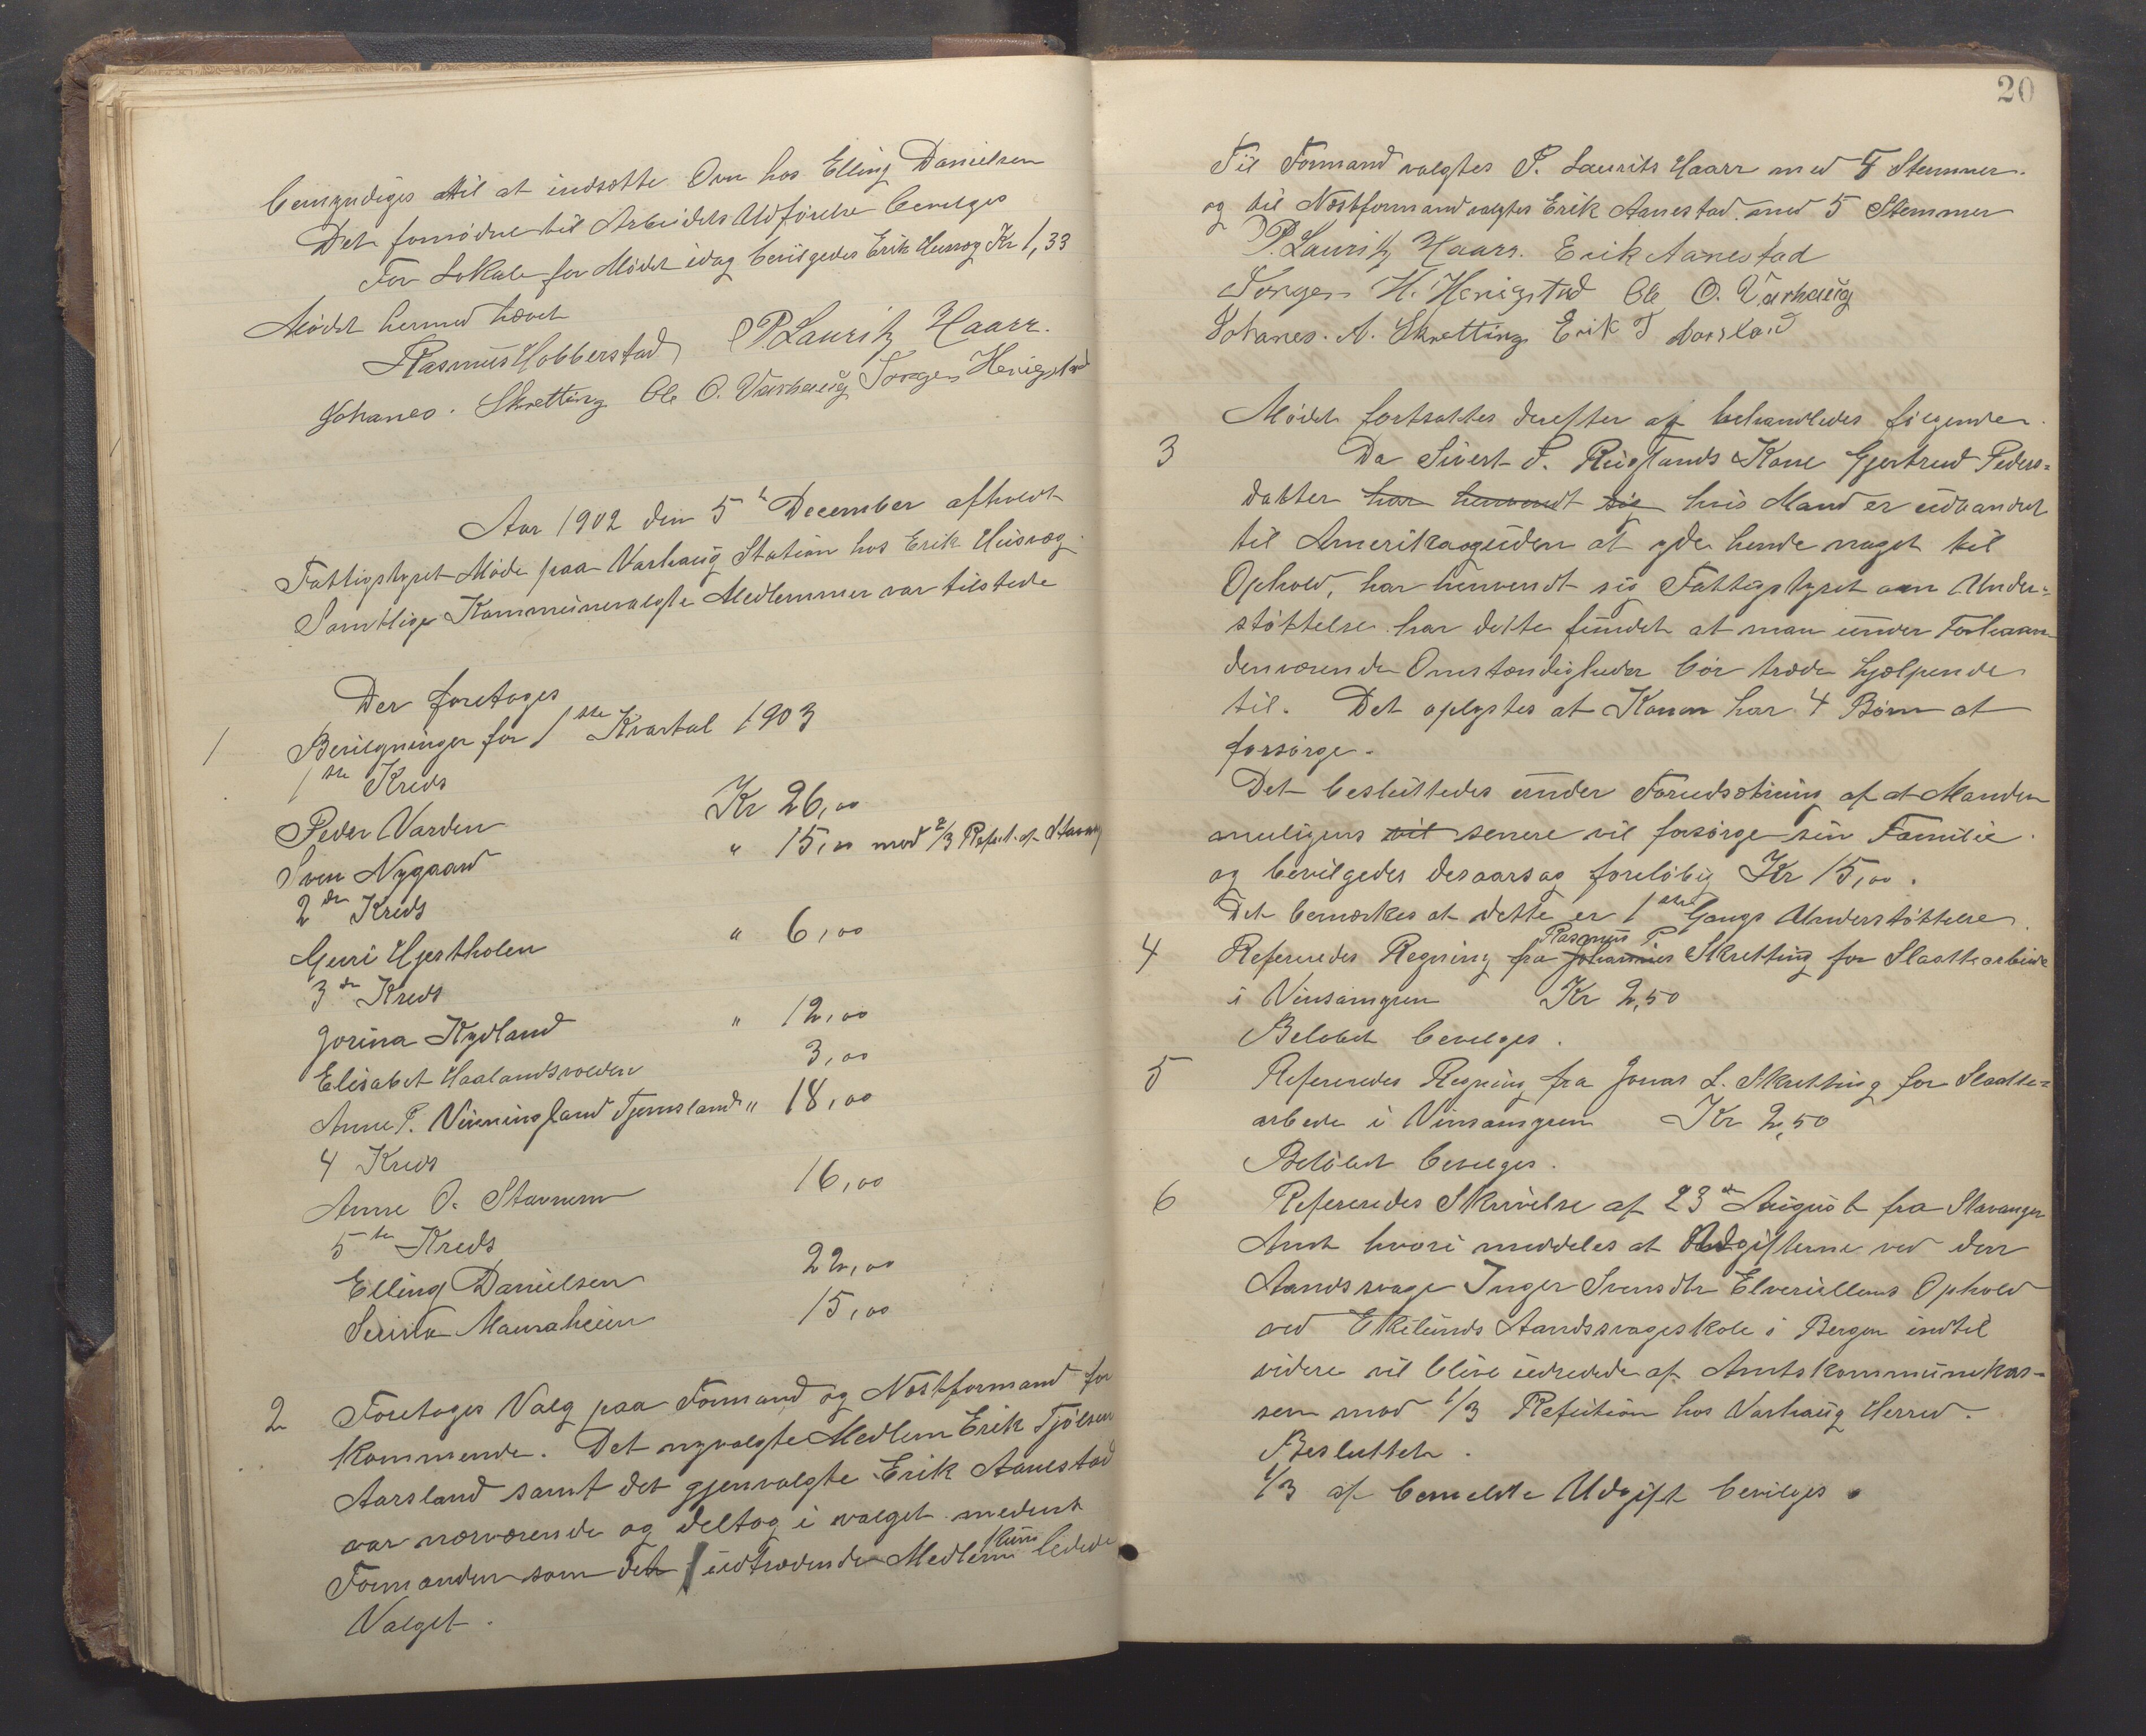 bemyndiges til at indsætte Ovn hos Elling Danielsen
Det fornødne til Arbeidets Udførelse bevilges
For Lokale for Mødet idag bevilgedes Erik Husvæg Kr 1,33
Mødet hermed hævet
Rasmus Hobberstad P. Lauritz Haarr.
Johanes. Skretting Ole O. Varhaug Torger Henigstad
Aar 1902 den 5te December afholdt
Fattigstyret Møde paa Varhaug Station hos Erik Husvæg.
Samtlige Kommunevalgte Medlemmer var tilstede
Der foretages
1 Bevilgninger for 1ste Kvartal 1903
1ste Kreds
Peder Varden Kr 26,00
Sven Nygaard " 15,00 med 2/3 Refut. af Stavang
2den Kreds
Guri Hjertholen " 6,00
3die Kreds
Jorina Kydland " 12,00
Elisabet Haalandsvolden 3,00
Anne P. Vinningland Tjemsland " 18,00
4 Kreds
Anne O. Stavnem 16,00
5te Kreds
Elling Danielsen 22,00
Serina Mauraheien 15,00
2 Foretoges Valg paa Formand og Næstformand for
kommende. Det nyvalgte Medlem Erik Tjølsen
Aarsland samt det gjenvalgte Erik Aanestad
var nærværende og deltog i valget medens
Formanden som det udtrædende Medlem kun ledede
Valget.
20
Til Formand valgtes P. Laurits Haarr med 4 Stemmer.
og til Næstformand valgtes Erik Aanestad med 5 Stemmer
P. Lauritz Haarr. Erik Aanestad
Torger H. Henigstad Ole O. Varhaug
Johanes. A. Skretting Erik T Aarsland
Mødet fortsattes derefter og behandledes følgende.
3 Da Sivert S. Ruglands Kone Gjertrud Peders-
datter har henvendt sig hvis Mand er udvandret
til Amerika og uden at yde hende noget til
Ophold, har henvendt sig Fattigstyret om Under-
støttelse har dette fundet at man under Forhaan-
denværende Omstændigheder bør træde hjælpende
til. Det oplystes at Konen har 4 Børn at
forsørge.
Det besluttedes under Forudsætning af at Manden
muligens vil senere vil forsørge sin Familie
og bevilgedes desaarsag foreløbig Kr 15,00.
Det bemærkes at dette er 1ste Gangs Understøttelse
4 Refereredes Regning fra Johannes Rasmus P Skretting for Slaattearbeide
i Vinsamyren Kr 2,50
Beløbet bevilges.
5 Refereredes Regning fra Jonas L. Skretting for Slaatte-
arbeide i Vinsamyren Kr 2,50
Beløbet bevilges.
6 Refereredes Skrivelse af 23de August fra Stavanger
Amt hvori meddeles at Udgifterne ved den
Aandssvage Inger Svensdtr Elvevillens Ophold
ved Ekelunds Aandssvageskole i Bergen indtil
videre vil blive udredede af Amtskommunekas-
sen mod 1/3 Refution hos Varhaug Herred.
Besluttet.
1/3 af bemeldte Udgift bevilges.